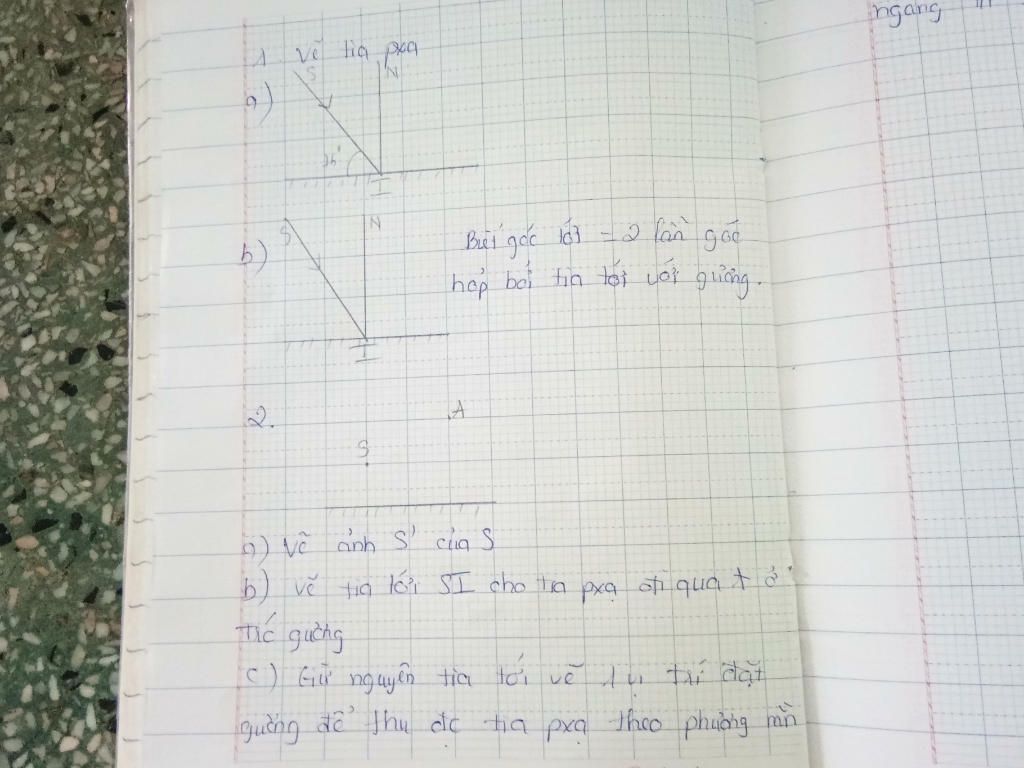 ngang
1. Vẽ tia pxạ
S
N
a)
I
S
N
b)
Biết góc tới = 2 lần góc
hợp bởi tia tới với gương.
I
2.
A
S
a) Vẽ ảnh S' của S
b) vẽ tia tới SI cho tia pxạ đi qua A ở
trc gương
c) Giữ nguyên tia tới vẽ 1 vị trí đặt
gương để thu đc tia pxạ theo phương nằn